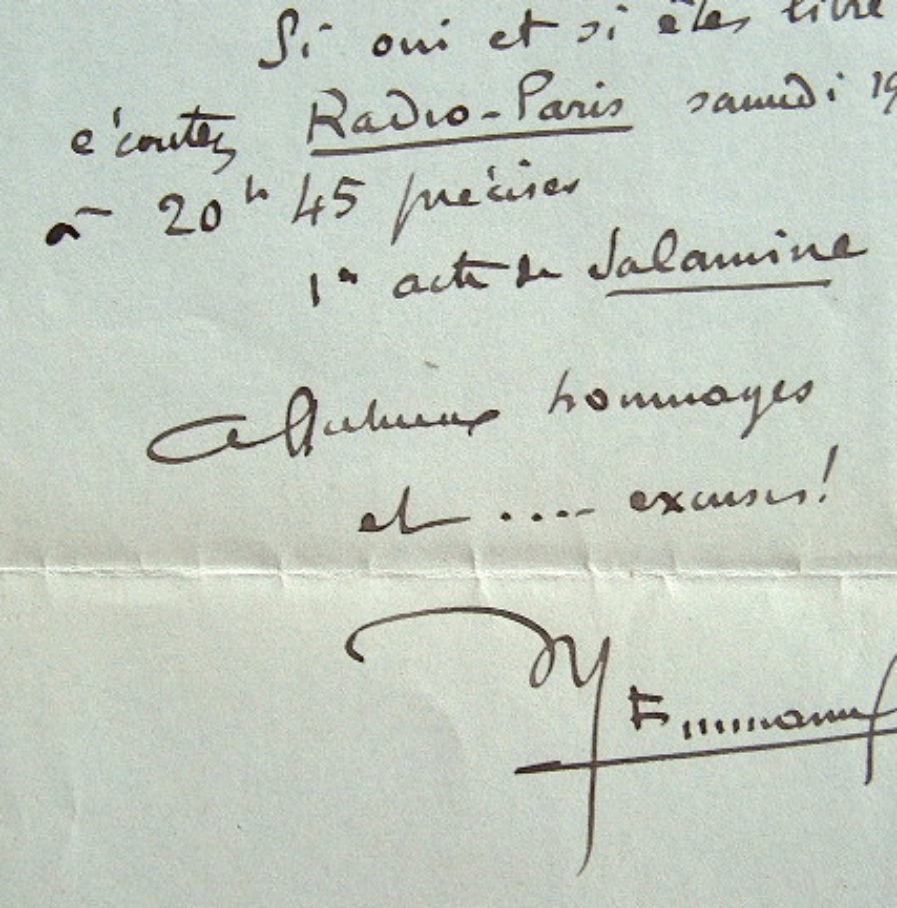 Si oui et si êtes libre
écoutez Radio-Paris samedi 19
à 20h 45 précises
1er acte de Salamine
Affectueux hommages
et .... excuses!
M Emmanuel